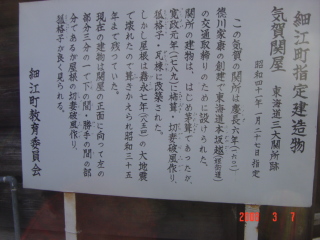 細江町指定建造物
気賀関屋 東海道三大関所跡
昭和四十一年一月二十七日 指定
この気賀の関所は慶長六年(一六〇一)
徳川家康の創建で東海道本坂越(姫街道)
の交通取締りのために設けられた。
関所の建物は、はじめ茅葺であったが、
寛政元年(一七八九)に桟葺・切妻破風作り、
狐格子・瓦棟に改築された。
しかし屋根は嘉永七年(一八五四)の大地震
で壊れたので葺きかえられ昭和三十五
年まで残っていた。
現在の建物は関屋の正面に向って左の
部分三分の一で下の間・勝手の間の部
分であるが屋根の切妻破風作り、
狐格子が良く見られる。
細江町教育委員会
3 7